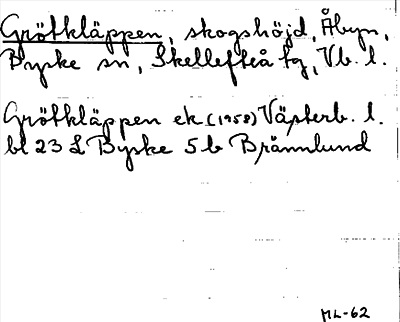 Grötkläppen, skogshöjd, Åbyn,
Byske sn, Skellefteå tg, Vb. l.
Grötkläppen ek (1958) Västerb. l.
bl 23 L Byske 5b Brännlund
ML-62